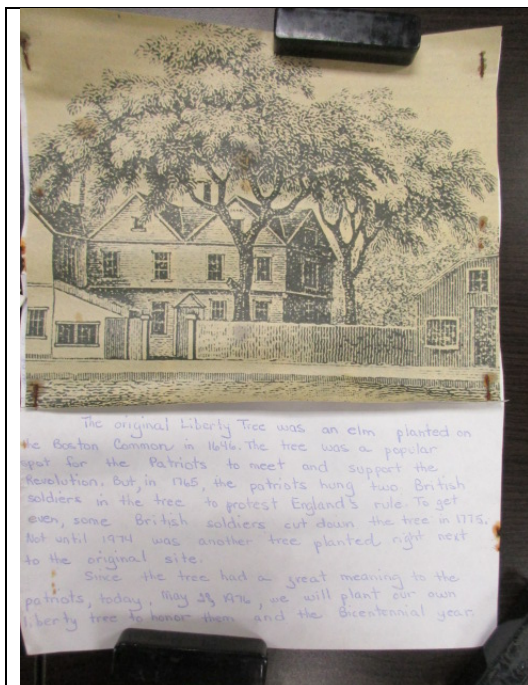 The original Liberty Tree was an elm planted on
the Boston Common in 1646. The tree was a popular
spot for the Patriots to meet and support the
Revolution. But, in 1765, the patriots hung two British
soldiers in the tree to protest England's rule. To get
even, some British soldiers cut down the tree in 1775.
Not until 1974 was another tree planted right next
to the original site.
Since the tree had a great meaning to the
patriots, today, May 1976, we will plant our own
liberty tree to honor them and the Bicentennial year.